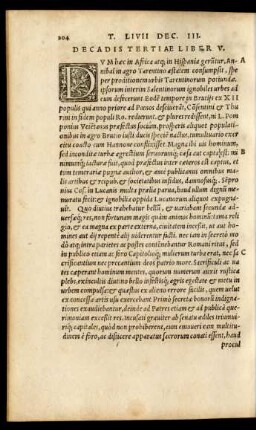 204 T. LIVII DEC. III.
DECADIS TERTIAE LIBER V.
DVM hæc in Africa atq; in Hispania gerūtur, An- A
nibal in agro Tarentino æstatem consumpsit, spe
per proditionem urbis Tarentinorum potiundæ.
ipsorum interim Salentinorum ignobiles urbes ad
eum defecerunt. Eodē tempore in Brutijs ex XII
populis qui anno priore ad Pœnos desciuerāt, Cōsentini & Thu
rini in fidem populi Ro. redierunt. & plures redissent, ni L. Pom
ponius Veiētanus præfectus sociûm, prosperis aliquot populatio-
nibus in agro Brutio iusti ducis specie nactus, tumultuario exer-
citu coacto cum Hannone conflixisset. Magna ibi uis hominum,
sed incondita turba agrestium seruorumq; cæsa aut capta est: mi B
nimum iacturæ fuit, quod præfectus inter cæteros est captus, et
tum temerariæ pugnæ auctor, et ante publicanus omnibus ma-
lis artibus & reipub. & societatibus infidus, damnosusq;. Sempro
nius Cos. in Lucanis multa prælia parua, haud ullum dignū me-
moratu fecit: & ignobilia oppida Lucanorum aliquot expugna-
uit. Quo diutius trahebatur bellū, & uariabant secundæ ad-
uersæq; res, non fortunam magis quàm animos hominū: tanta relí
gio, & ea magna ex parte externa, ciuitatem incessit, ut aut ho-
mines aut dij repentē alij uiderentur facti. nec iam in secreto mo
dò atq; intra parietes ac postes contēnebantur Romani ritus, sed
in publico etiam ac foro Capitolioq; mulierum turba erat, nec sa C
crificantium nec precantium deos patrio more. Sacrificuli ac ua
tes ceperant hominum mentes, quorum numerum auxit rustica
plebs, ex incultis diutino bello infestisq; agris egestate & metu in
urbem compulsa: & quæstus ex alieno errore facilis, quem uelut
ex concessæ artis usu exercebant. Primò secretæ bonorū indigna-
tiones exaudiebantur, deinde ad Patres etiam & ad publicā que-
rimoniam excessit res. incusati grauiter ab senatu ædiles triumui-
riq; capitales, quòd non prohiberent, cum emouere eam multitu-
dinem è foro, ac disijcere apparatus sacrorum conati essent, haud
procul